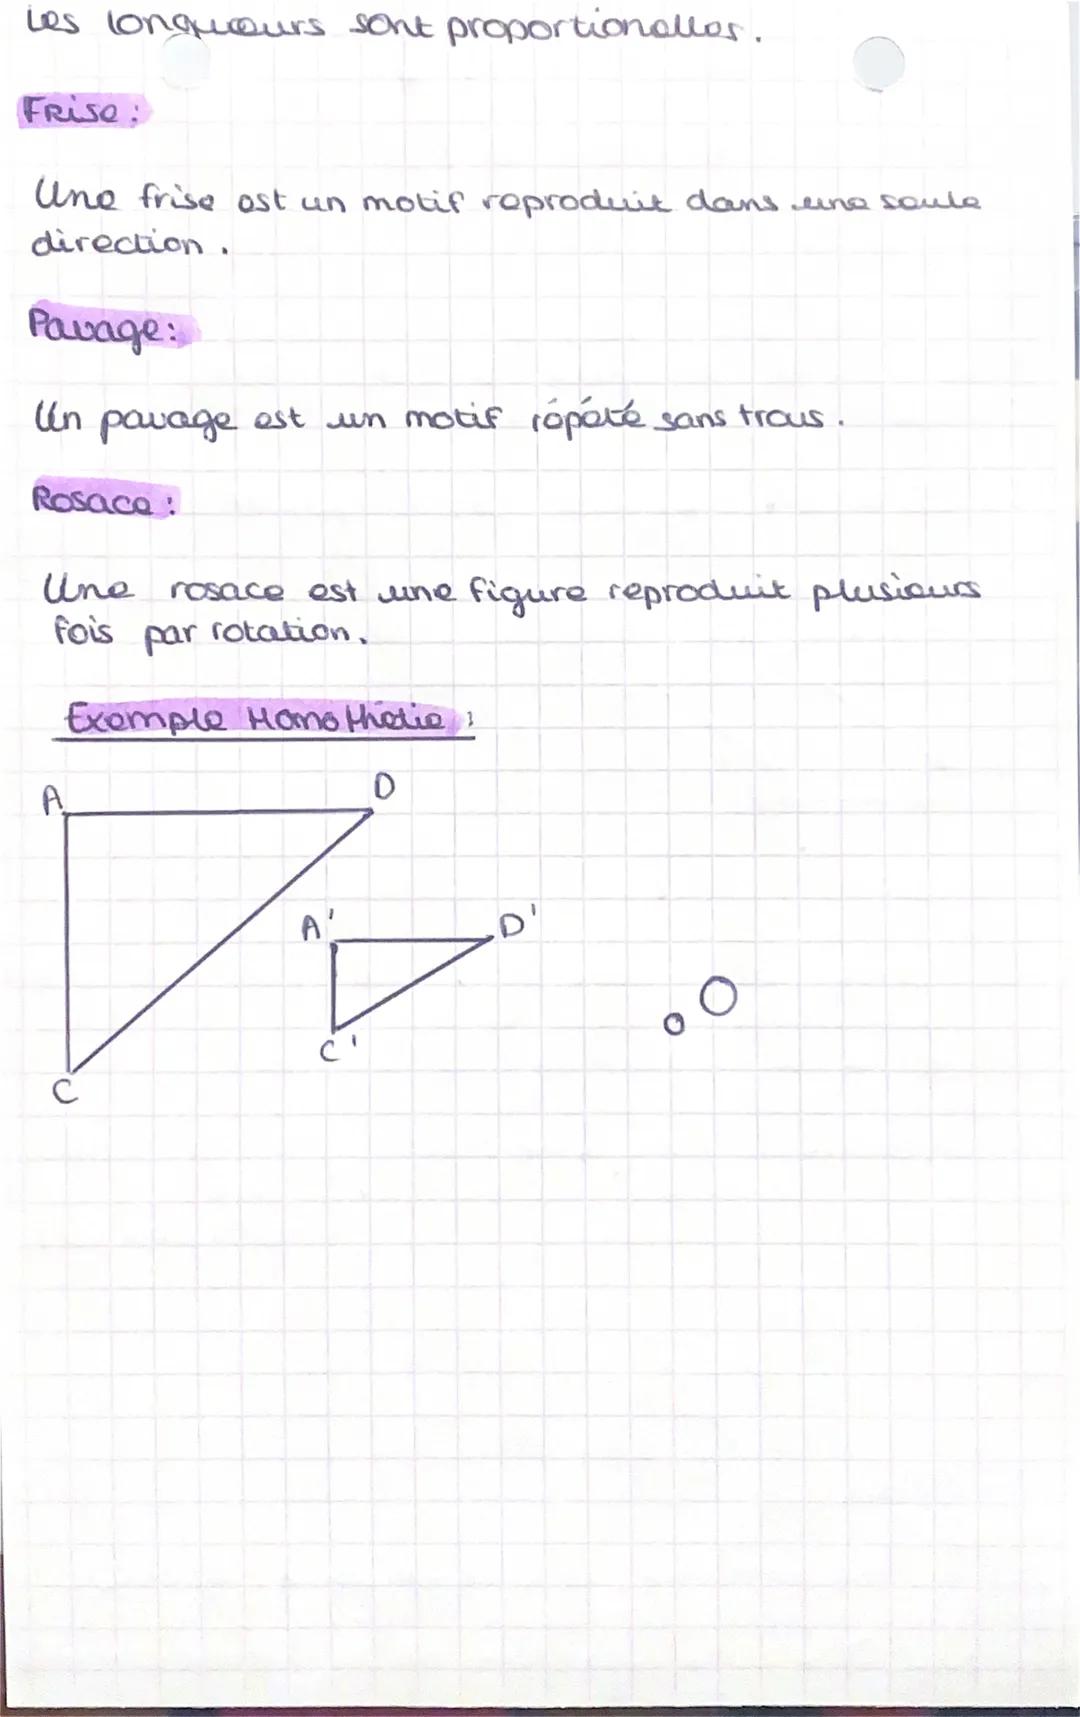 Les longueurs sont proportionelles.
Frise :
Une frise est un motif reproduit dans une seule
direction.
Pavage :
Un pavage est un motif répété sans trous.
Rosace :
Une rosace est une figure reproduit plusieurs
fois par rotation.
Exemple Homothétie :
A
D
A'
D'
O
C'
C